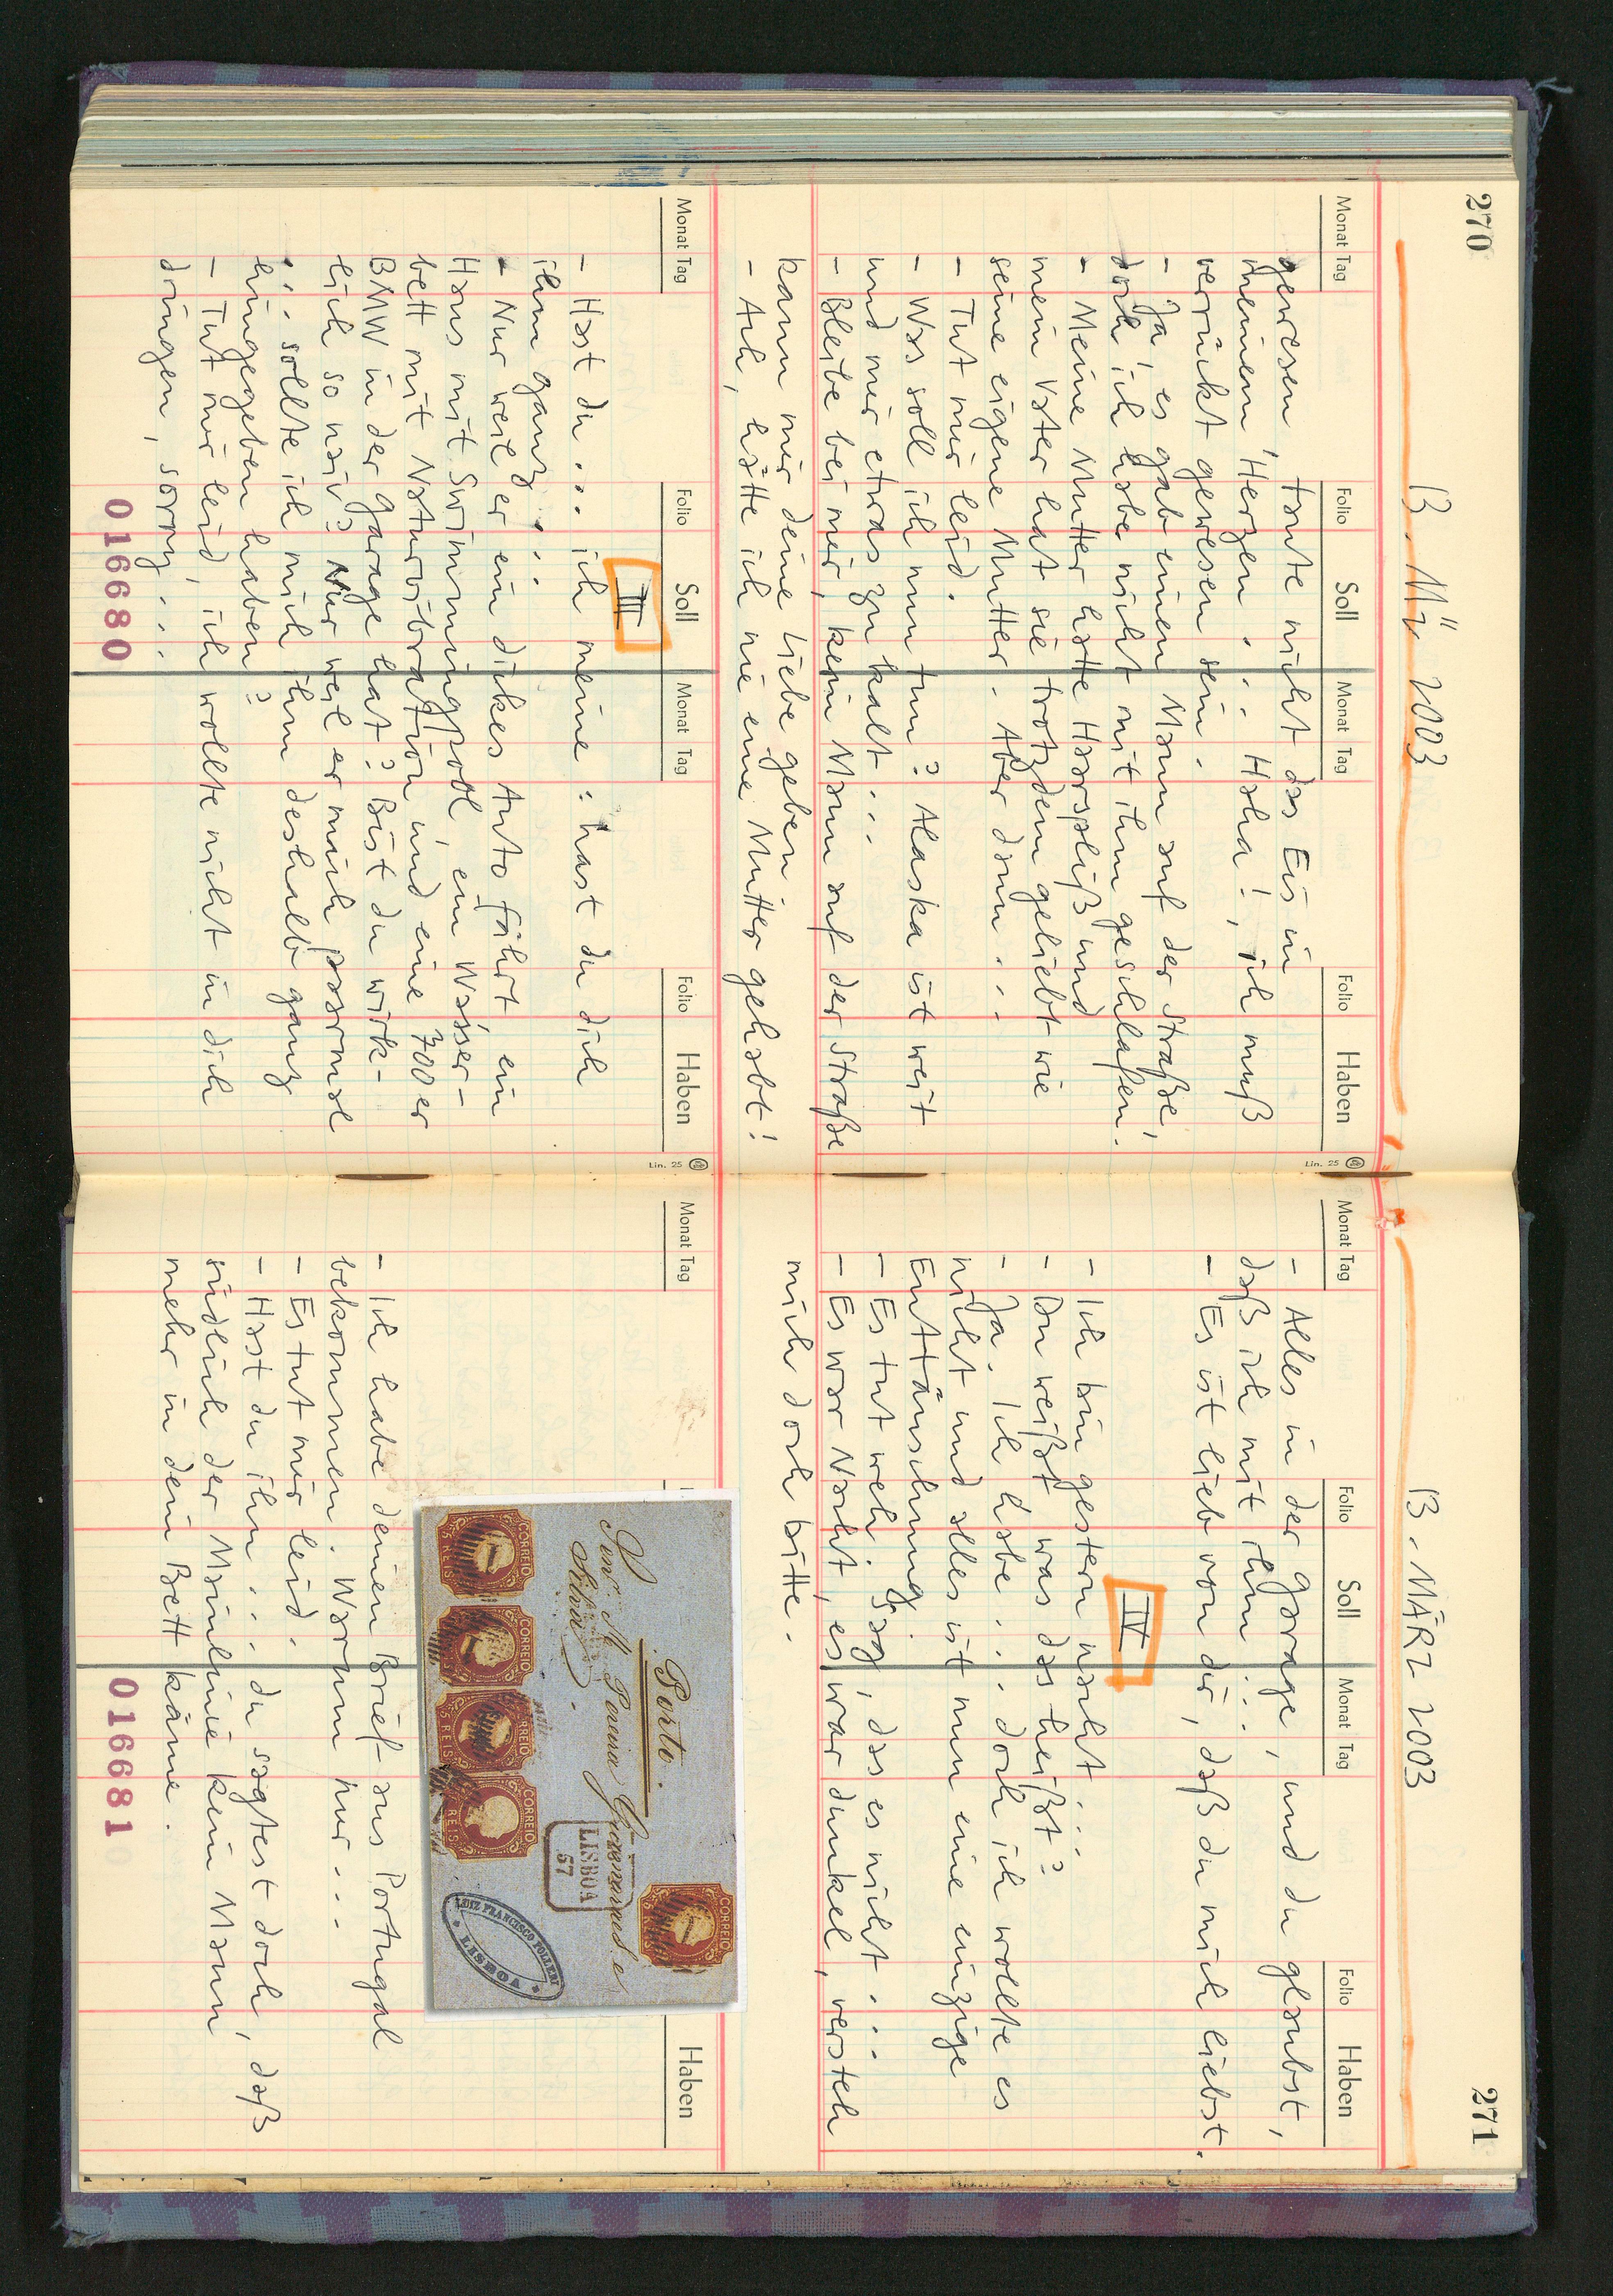 270
13. Mä 2003
Monat Tag Folio Soll Monat Tag Folio Haben
gewesen, taute nicht das Eis in
meinem Herzen ... Haha!, ich muß
verrückt gewesen sein.
- Ja, es gab einen Mann auf der Straße,
doch ich habe nicht mit ihm geschlafen.
- Meine Mutter hatte Haarspliß und
mein Vater hat sie trotzdem geliebt wie
seine eigene Mutter. Aber dann ...
- Tut mir leid.
- Was soll ich nun tun? Alaska ist weit
und mir etwas zu kalt ...
- Bleibe bei mir, kein Mann auf der Straße
kann mir deine Liebe geben.
- Ach, hätte ich nie eine Mutter gehabt!
Lin. 25
Monat Tag Folio Soll Monat Tag Folio Haben
III
- Hast du ... ich meine: hast du dich
ihm ganz ...
- Nur weil er ein dickes Auto fährt, ein
Haus mit Swimmingpool, ein Wasser-
bett mit Naturvibration und eine 700er
BMW in der Garage hat? Bist du wirk-
lich so naiv? Nur weil er mich paarmal
... sollte ich mich ihm deshalb ganz
hingegeben haben?
- Tut mir leid, ich wollte nicht in dich
dringen, sorry ...
016680
Lin. 25
271
13. MÄRZ 2003
Monat Tag Folio Soll Monat Tag Folio Haben
- Alles in der Garage, und du glaubst,
daß ich mit ihm ...
- Es ist lieb von dir, daß du mich liebst.
IV
- Ich bin gestern nacht ...
- Du weißt was das heißt?
- Ja. Ich habe ... doch ich wollte es
nicht und alles ist nun eine einzige
Enttäuschung.
- Es tut weh. Sag, das es nicht ...
- Es war Nacht, es war dunkel, versteh
mich doch bitte.
Monat Tag Haben
Porto.
Silva
CORREIO
5 REIS
CORREIO
5 REIS
CORREIO
5 REIS
CORREIO
5 REIS
CORREIO
5 REIS
LISBOA
57
LUIZ FRANCISCO POLLERI
LISBOA
- Ich habe deinen Brief aus Portugal
bekommen. Warum nur ...
- Es tut mir leid.
- Hast du ihn ... du sagtest doch, daß
südlich der Mainlinie kein Mann
mehr in dein Bett käme.
016681